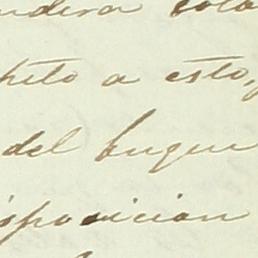 ndera sola
peto a esto,
del buque
isposicion